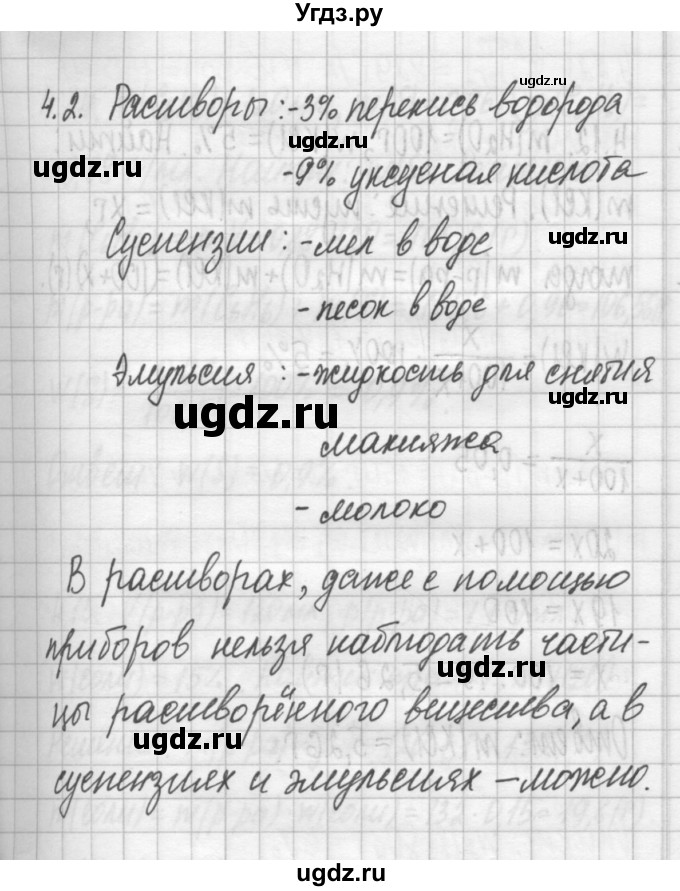 Угдз.ру
ugdz.ru
4.2. Растворы: -3% перекись водорода
ugdz.ru
ugdz.ru
-9% уксусная кислота
Суспензии: -мел в воде
ugdz.ru
- песок в воде
Эмульсия: -жидкость для снятия
ugdz.ru
ugdz.ru
макияжа
- молоко
В растворах, даже с помощью
приборов нельзя наблюдать части-
ugdz.ru
цы растворённого вещества, а в
ugdz.ru
суспензиях и эмульсиях – можно.
ugdz.ru